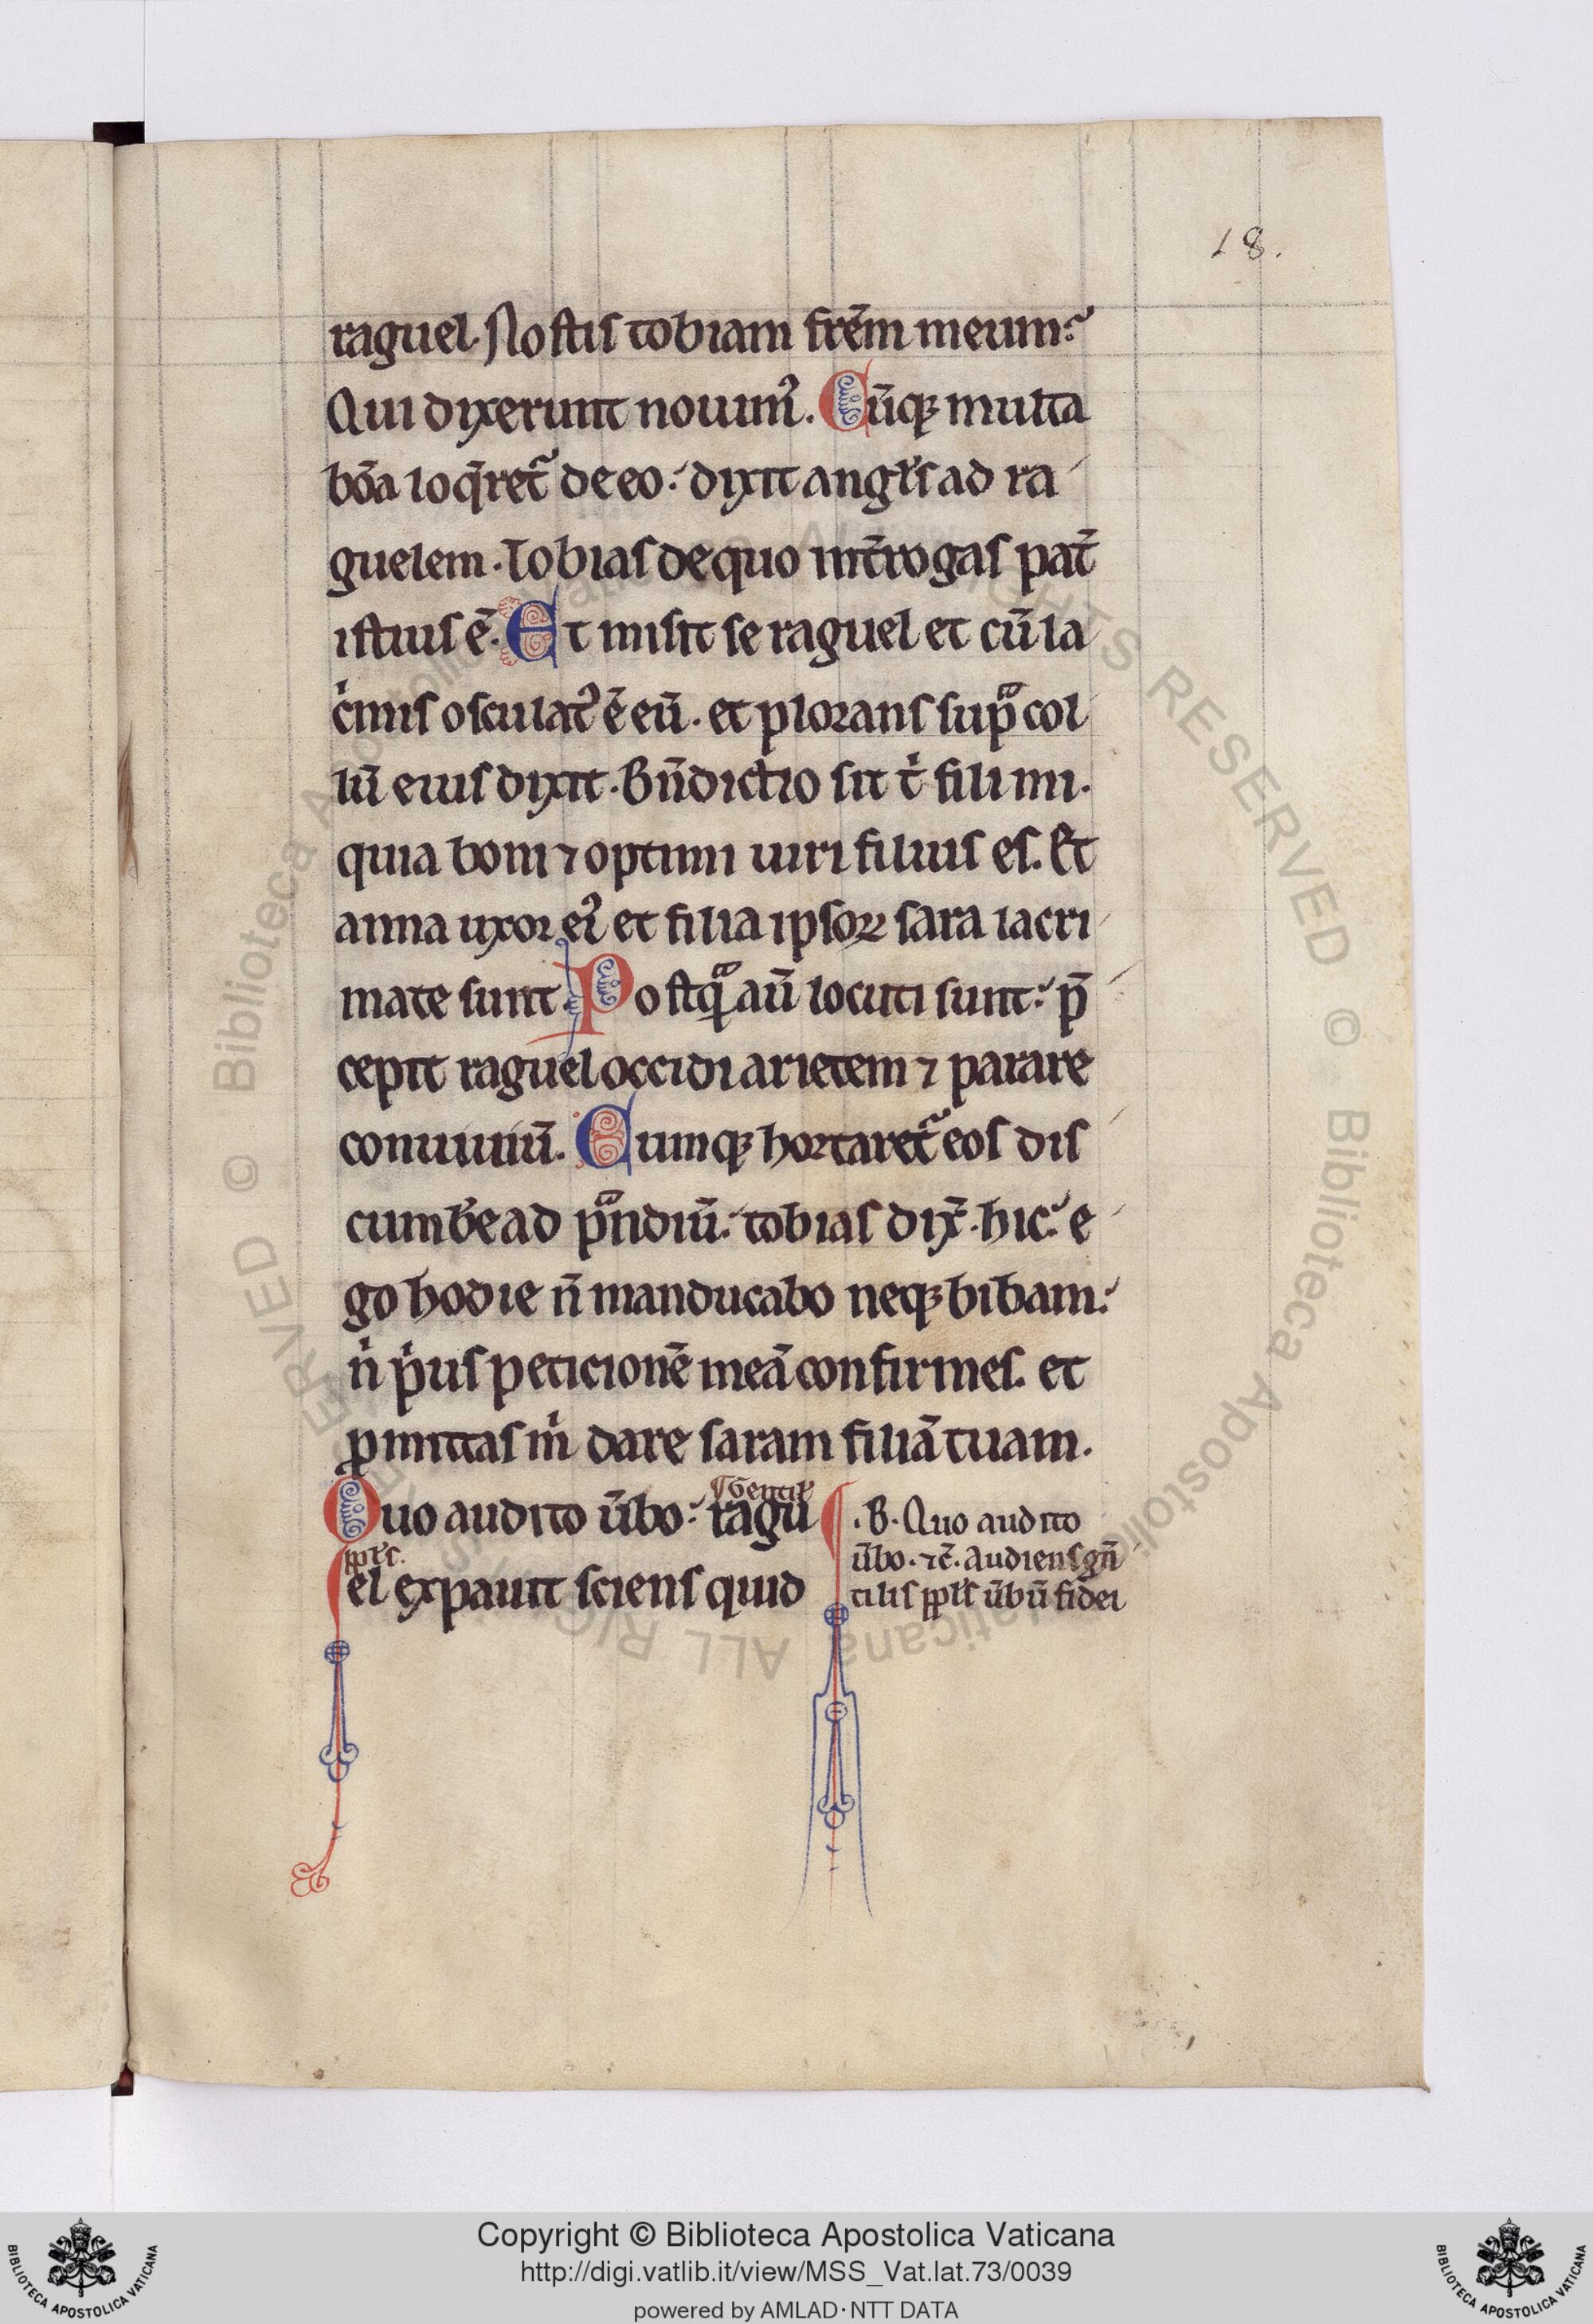 18.
raguel. Nostis tobiam frẽm meum?
Qui dixerunt nouim᷒. Cũq; multa
bõa loq̃ret᷑ de eo: dixit angľs ad ra
guelem. Tobias de quo int̃rogas pat̃
istius ẽ. Et misit se raguel et cũ la
c̍mis osculat᷒ ẽ eũ. et plorans supᷓ col
lũ eius dixit. Bñdictio sit t̍ fili mi.
quia boni ⁊ optimi uiri filius es. Et
anna uxor ei᷒ et filia ipsoꝝ sara lacri
mate sunt. Postqᷓ aũ locuti sunt: p̃
cepit raguel occidi arietem ⁊ parare
conuiuiũ. Cumq; hortaret᷑ eos dis
cumb̃e ad pᷓndiũ: tobias dix̃. hic: e
go hodie ñ manducabo neq; bibam:
n̍ p̍us peticionẽ meã confirmes. et
ꝑmittas m̍ dare saram filiã tuam.
Quo audito ũbo: ragu
¶Gentiľ
el expauit sciens quid
ppľs.
.B. Quo audito
ũbo. ⁊c̃. Audiens gñ
tilis ppľs ũbũ fidei
Copyright © Biblioteca Apostolica Vaticana
http://digi.vatlib.it/view/MSS_Vat.lat.73/0039
powered by AMLAD·NTT DATA
BIBLIOTECA APOSTOLICA VATICANA
BIBLIOTECA APOSTOLICA VATICANA